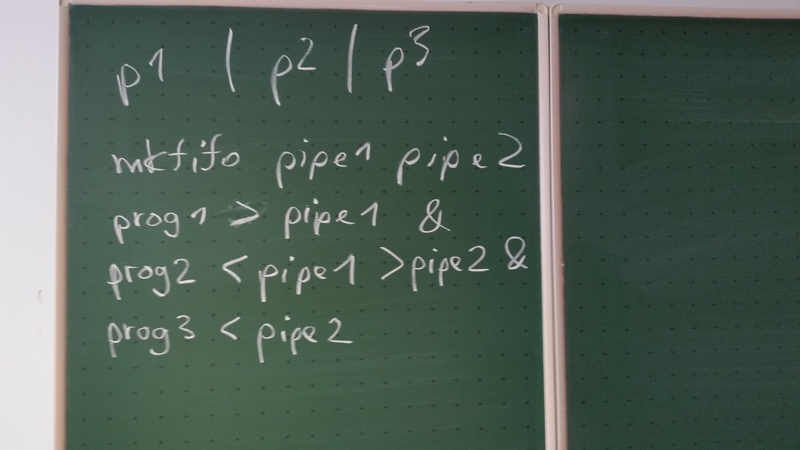 p1 | p2 | p3
mkfifo pipe1 pipe2
prog1 > pipe1 &
prog2 < pipe1 >pipe2 &
prog3 < pipe2